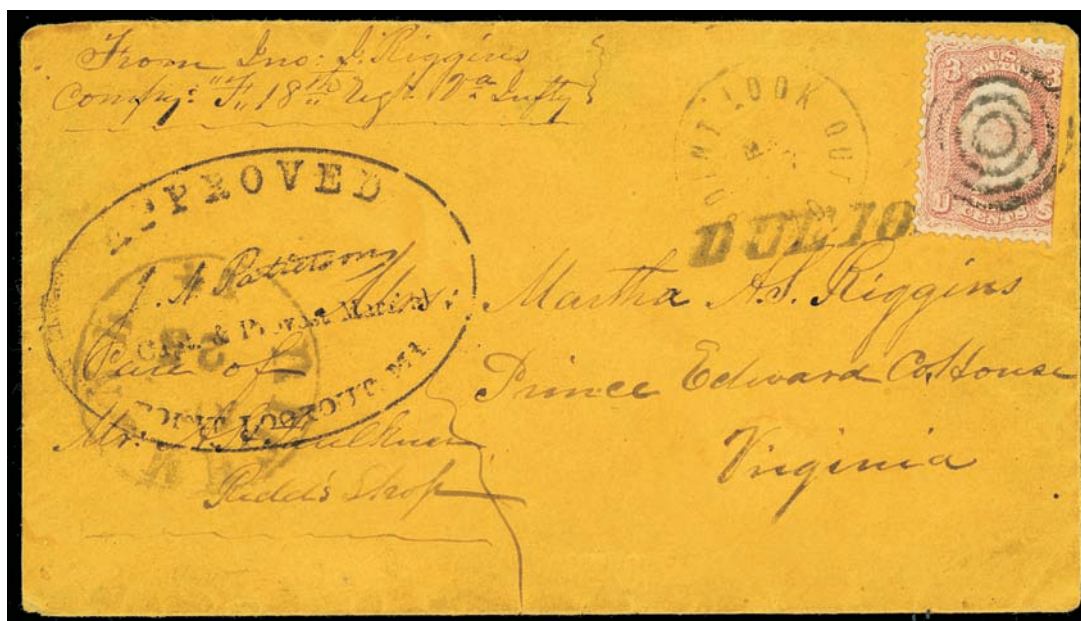 From Jno: J. Riggins
Compy: "F" 18th Regt. Va Infty
POINT LOOK OUT
U.S. POSTAGE
3 3
U CENTS S
DUE 10
APPROVED
J. N. Patterson
Capt. & Provost Marshal
POINT LOOKOUT. Md.
Mrs: Martha A. S. Riggins
Prince Edward Co. House
Virginia
Care of
Mr: Faulkner
Redd's Shop